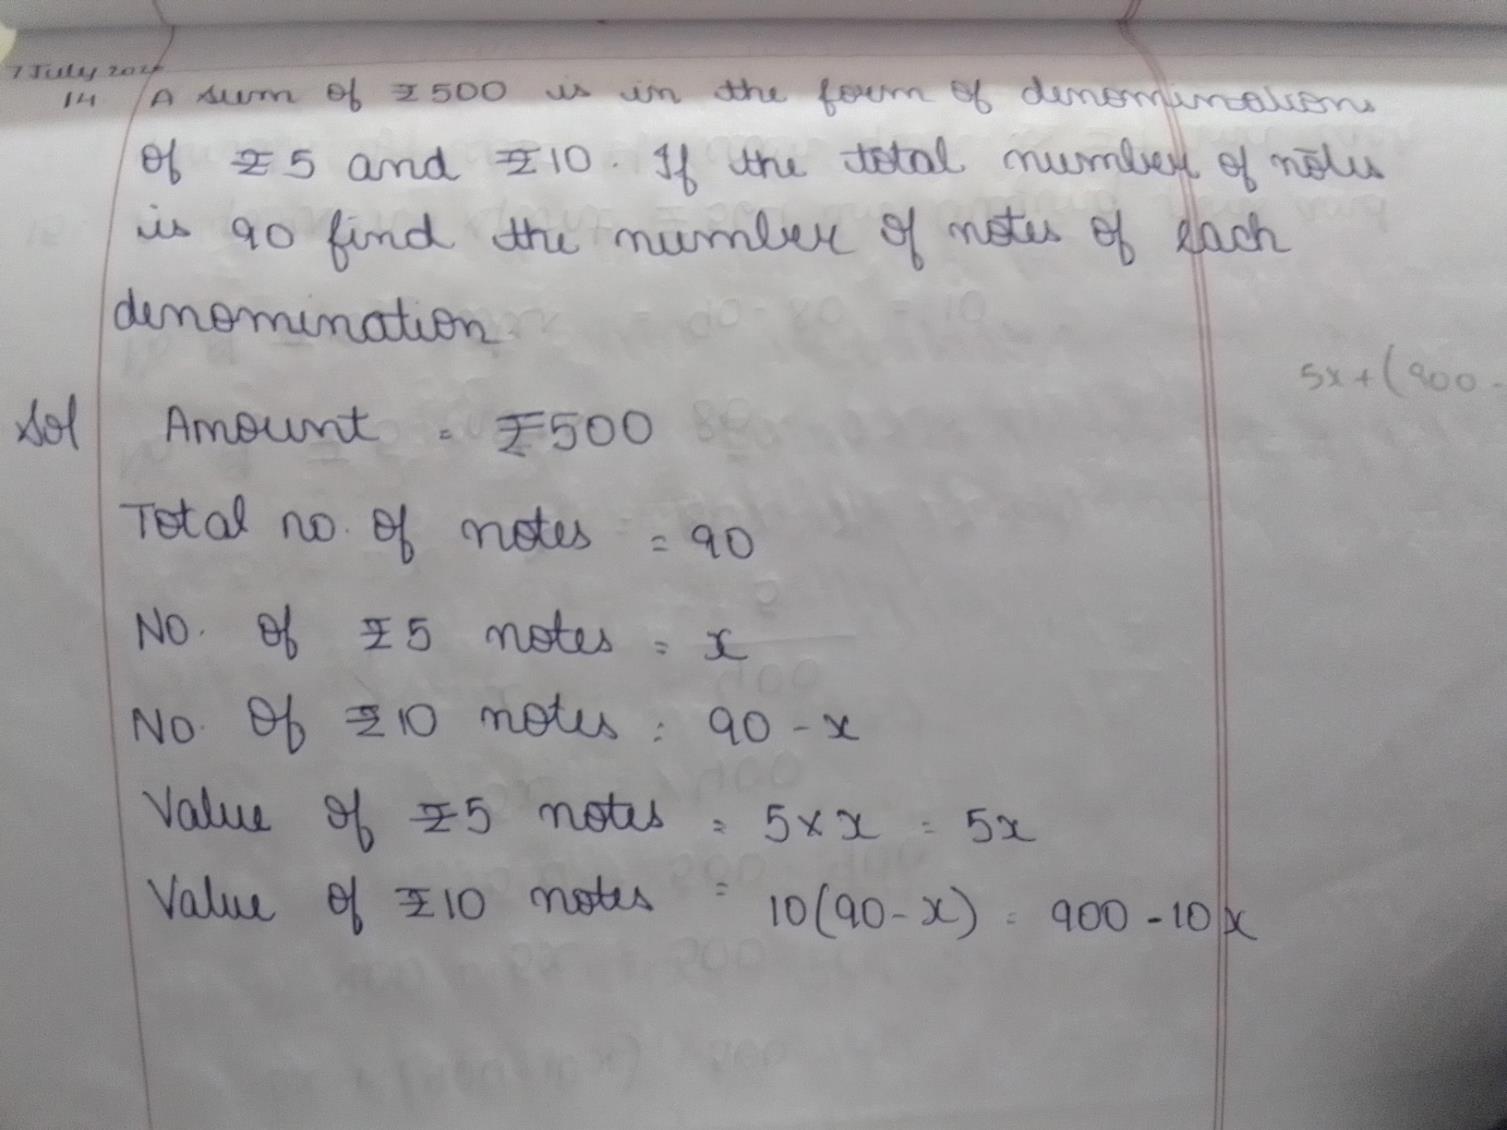 7 July 202
14 A sum of ₹500 is in the form of denominations
of ₹5 and ₹10. If the total number of notes
is 90 find the number of notes of each
denomination.
5x+(900-
Sol Amount = ₹500
Total no. of notes = 90
No. of ₹5 notes = x
No. of ₹10 notes = 90-x
Value of ₹5 notes = 5×x = 5x
Value of ₹10 notes = 10(90-x) = 900-10x